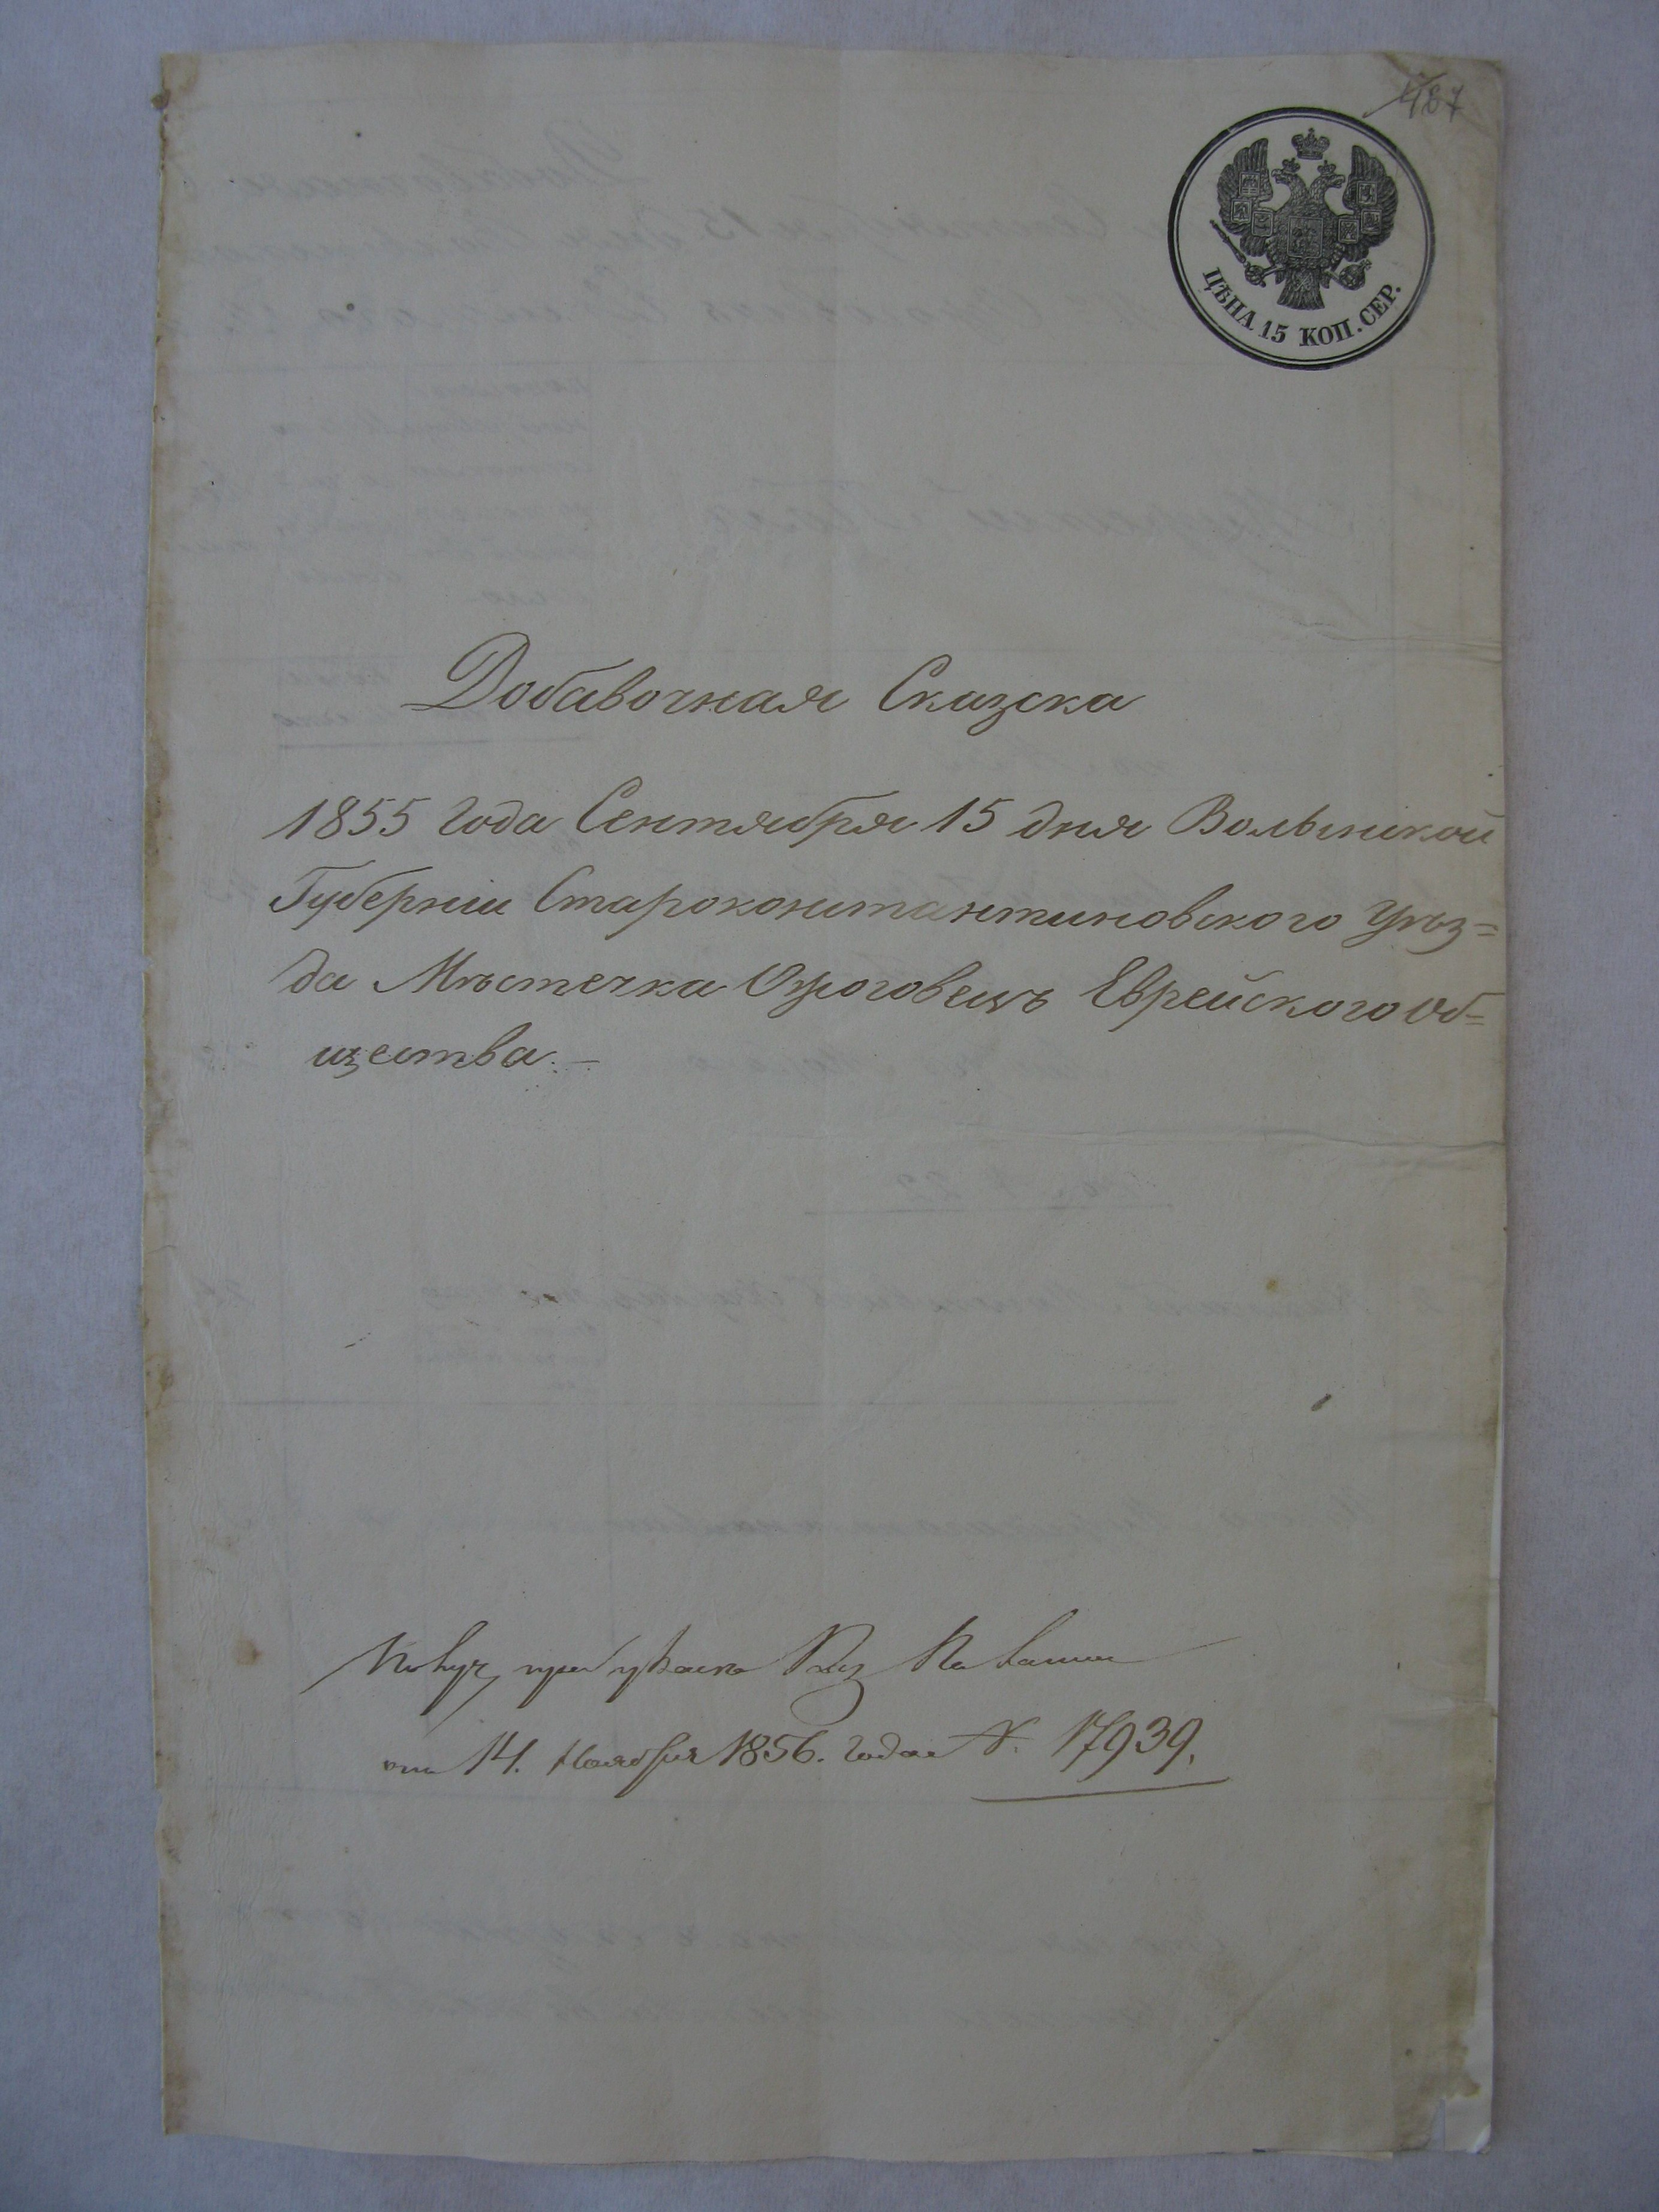 187
ЦѢНА 15 КОП. СЕР.
Добавочная Сказка
1855 года Сентября 15 дня Волынской
Губерніи Староконстантиновского Уѣз=
да Мѣстечка Ожоговецъ Еврейского Об=
щества.—
от 14. Ноября 1856. года N. 17939.